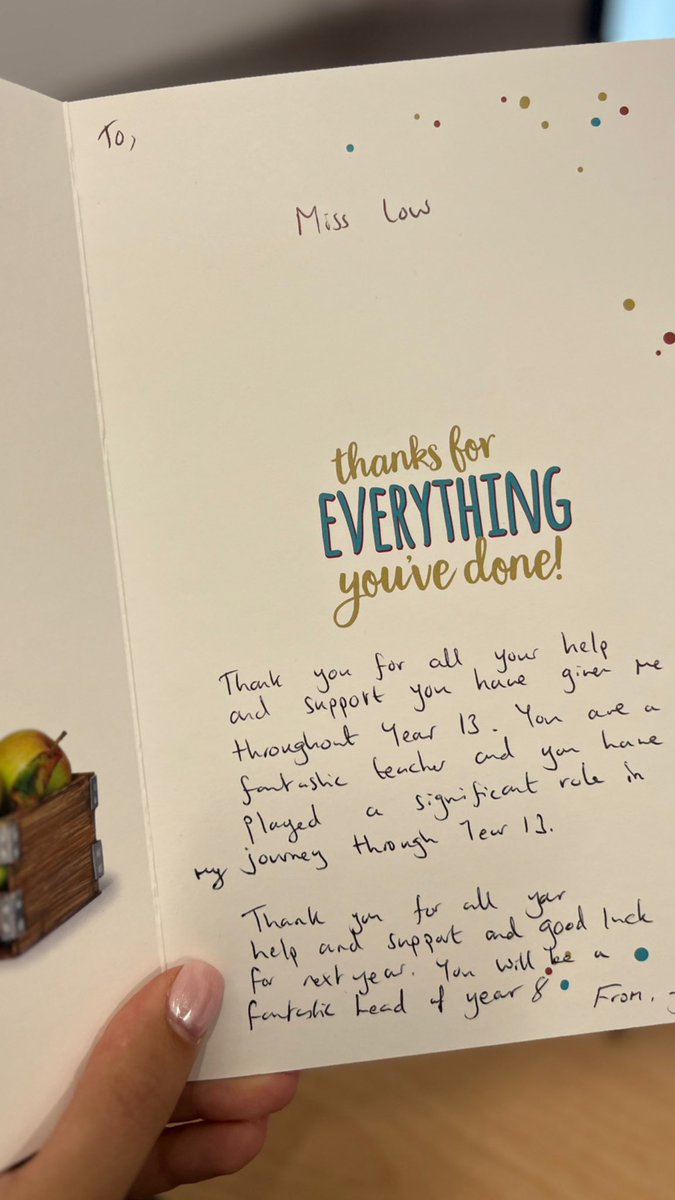 To,
Miss Low
thanks for
EVERYTHING
you've done!
Thank you for all your help
and support you have given me
throughout Year 13. You are a
fantastic teacher and you have
played a significant role in
my journey through Year 13.
Thank you for all your
help and support and good luck
for next year. You will be a
fantastic head of year 8
From,